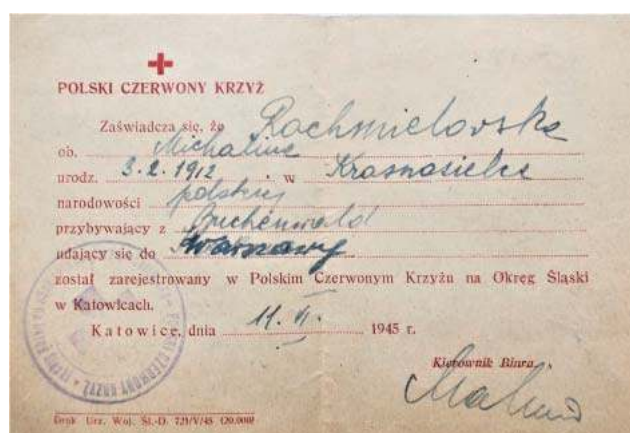 POLSKI CZERWONY KRZYŻ
Zaświadcza się, że Rochmielowska
ob. Michalina
urodz. 3.2.1912 w Krasnosielce
narodowości polskiej
przybywający z Buchenwald
udający się do Warszawy
został zarejestrowany w Polskim Czerwonym Krzyżu na Okręg Śląski
w Katowicach.
Katowice, dnia 11. VI. 1945 r.
Kierownik Biura
POLSKI CZERWONY KRZYŻ
Druk Urz. Woj. Śl.-D. 721/V/45 (20.000)